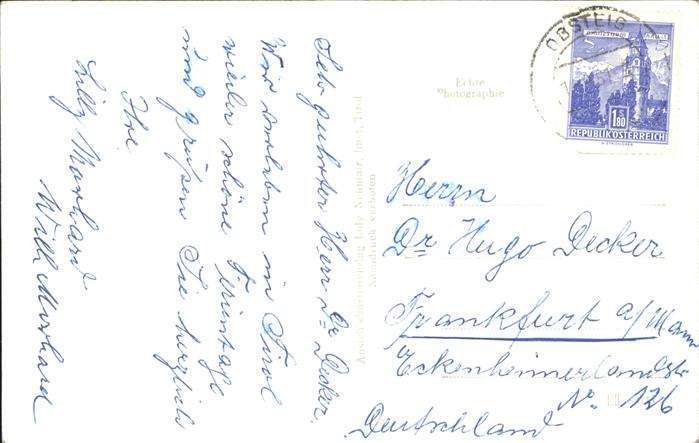 Sehr geehrter Herr Dr Decker.
Wir verleben in Tirol
wieder schöne Ferientage
und grüßen Sie herzlich
Ihre
Lilly Morhard
Willi Morhard
Echte
Photographie
Ansichtskartenverlag Imst, Tirol
Nachdruck verboten
OBSTEIG
1.80
REPUBLIK ÖSTERREICH
Herrn
Dr Hugo Decker
Frankfurt a/Main
Eckenheimerlandstr
No. 126
Deutschland